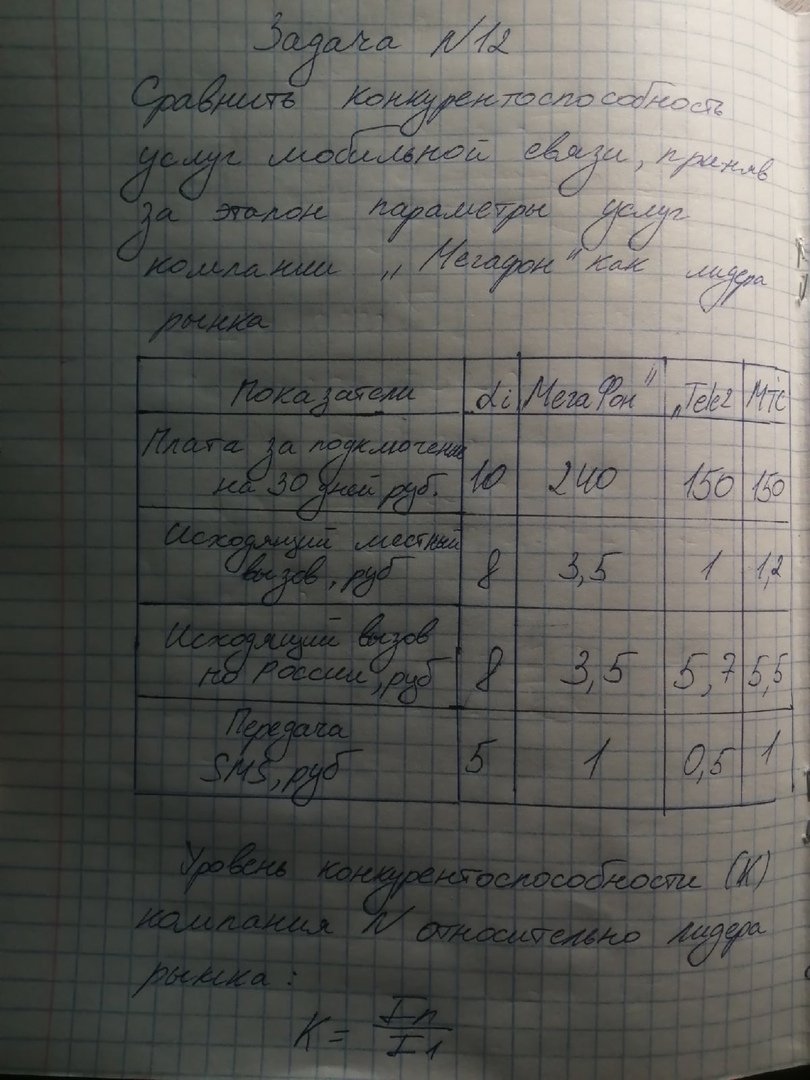 Задача №12
Сравнить конкурентоспособность
услуг мобильной связи, приняв
за эталон параметры услуг
компании „Мегафон" как лидера
рынка
Показатели αi МегаФон" „Tele2 МТС
Плата за подключение
на 30 дней руб. 10 240 150 150
Исходящий местный
вызов, руб 8 3,5 1 1,2
Исходящий вызов
по России, руб 8 3,5 5,7 5,5
Передача
SMS, руб 5 1 0,5 1
Уровень конкурентоспособности (К)
компания N относительно лидера
рынка:
K = In / I1